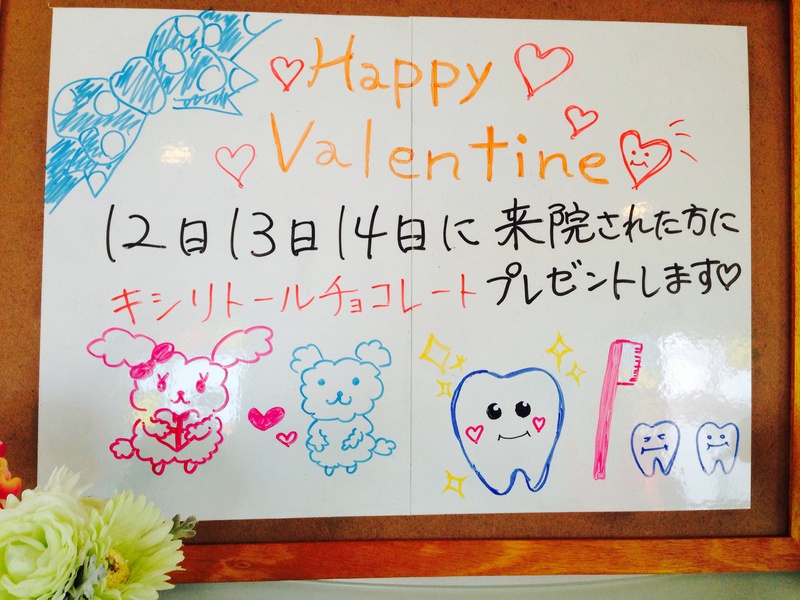 Happy
Valentine
12日13日14日に来院された方に
キシリトールチョコレートプレゼントします♡